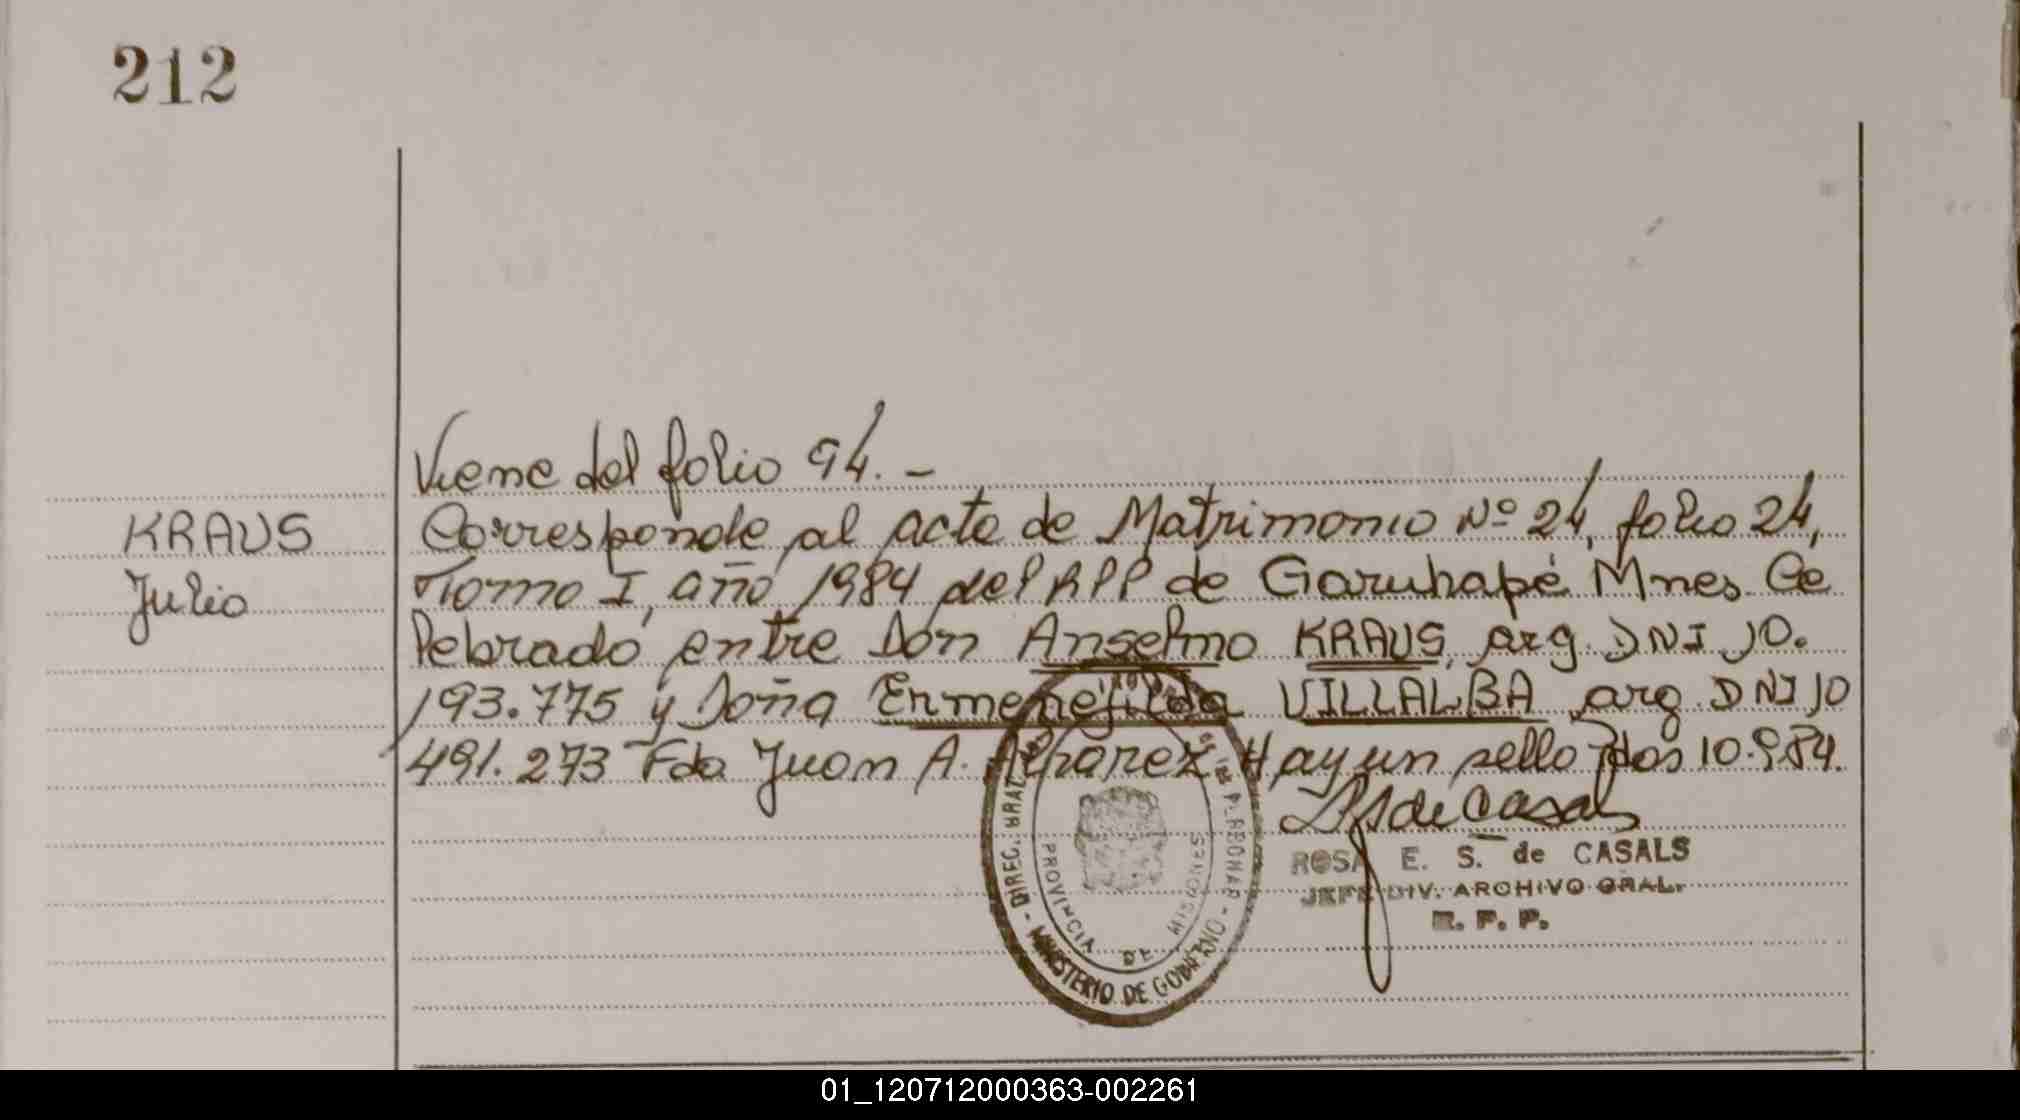 212
Viene del folio 94.-
KRAUS
Julio
Corresponde al acta de Matrimonio Nº 24, folio 24,
Tomo I, año 1984 del RPP de Garuhapé Mnes. Ce
lebrado entre Don Anselmo KRAUS, arg. DNI 10.
193.775 y Doña Ermenejilda VILLALBA arg. DNI 10
491.273 Fdo Juan A. Alvarez Hay un sello Pdas 10.9.84.
ROSA E. S. de CASALS
JEFE DIV. ARCHIVO GRAL.
R. P. P.
PROVINCIA DE MISIONES
MINISTERIO DE GOBIERNO
01_120712000363-002261